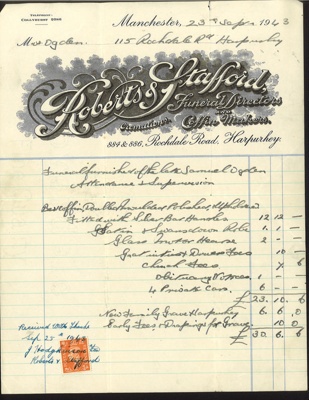 TELEPHONE:
Manchester, 23rd Sept 1943
Mrs Ogden.
115 Rochdale Rd Harpurhey
Roberts & Stafford,
Funeral Directors
AND
Coffin Makers.
Cremations
884 & 886, Rochdale Road, Harpurhey.
Funeral furnished of the late Samuel Ogden
Attendance & Supervision
Best Coffin Double Moulded Polished Upholstered
Fitted with Silver Bar Handles 12 12 —
Satin & Swansdown Robe 1. 1 —
Glass Motor Hearse 2 — —
Gratuities and Drivers Fees 10 —
Church Fees 7. 6
Obituary Notices 1 — —
4 Private Cars. 6 —
£ 23. 10. 6
New Family Grave Harpurhey 6 6. 0
Early Fees & Drapings for Grave 10 0
£ 30. 6. 6
Received With Thanks
Sept 25th 1943
Roberts & Stafford